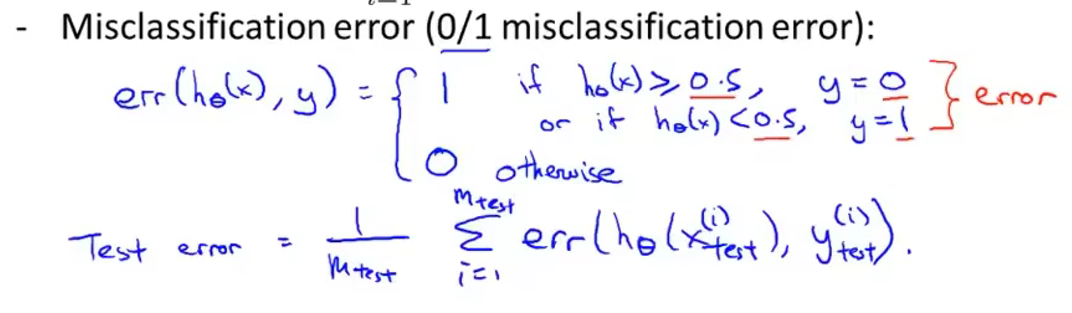 - Misclassification error (0/1 misclassification error):
err(hθ(x), y) = { 1 if hθ(x) ≥ 0.5, y = 0 } error
or if hθ(x) < 0.5, y = 1
0 otherwise
Test error = 1/mtest Σ i=1 mtest err(hθ(x(i)test), y(i)test).